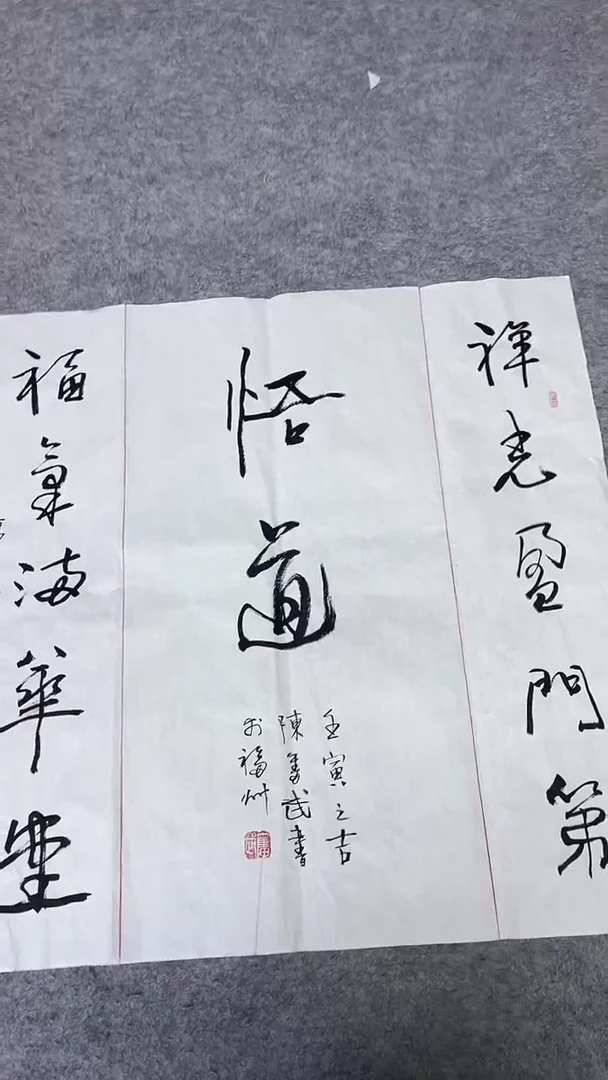 祥光盈門第
悟道
壬寅之吉
陳秀武書
於福州
福氣滿華堂